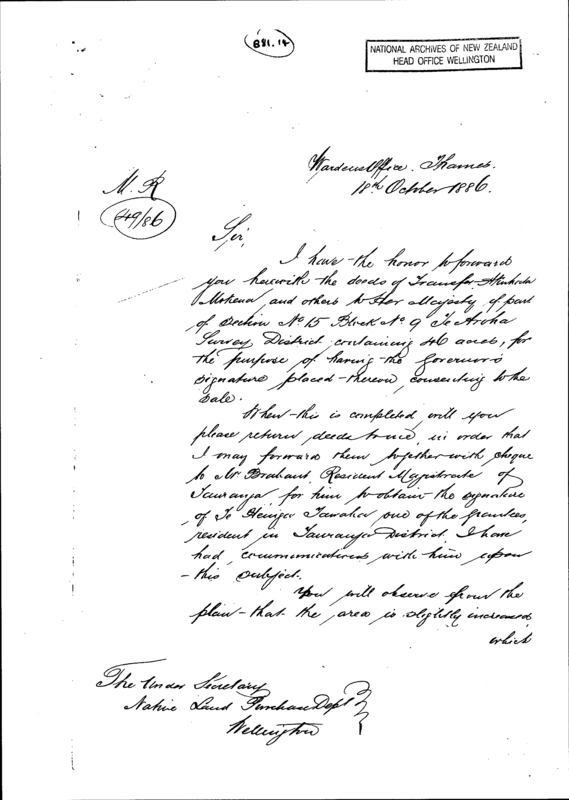 881.14
NATIONAL ARCHIVES OF NEW ZEALAND
HEAD OFFICE WELLINGTON
Wardens Office. Thames.
18th October 1886.
M. R
649/86
Sir,
I have the honor to forward
you herewith the deeds of Transfer
Mokena and others to Her Majesty of part
of Section No 15 Block No 9 Te Aroha
Survey District, containing 46 acres, for
the purpose of having the Governor's
signature placed thereon, consenting to the
Sale.
When this is completed, will you
please return deeds to me, in order that
I may forward them together with cheque
to Mr Brabant, Resident Magistrate of
Tauranga, for him to obtain the signature
of Te Tawaha one of the grantees,
resident in Tauranga District. I have
had communications with him upon
this subject.
You will observe from the
plan that the area is slightly increased,
which
The Under Secretary
Native Land Purchase Dept
Wellington